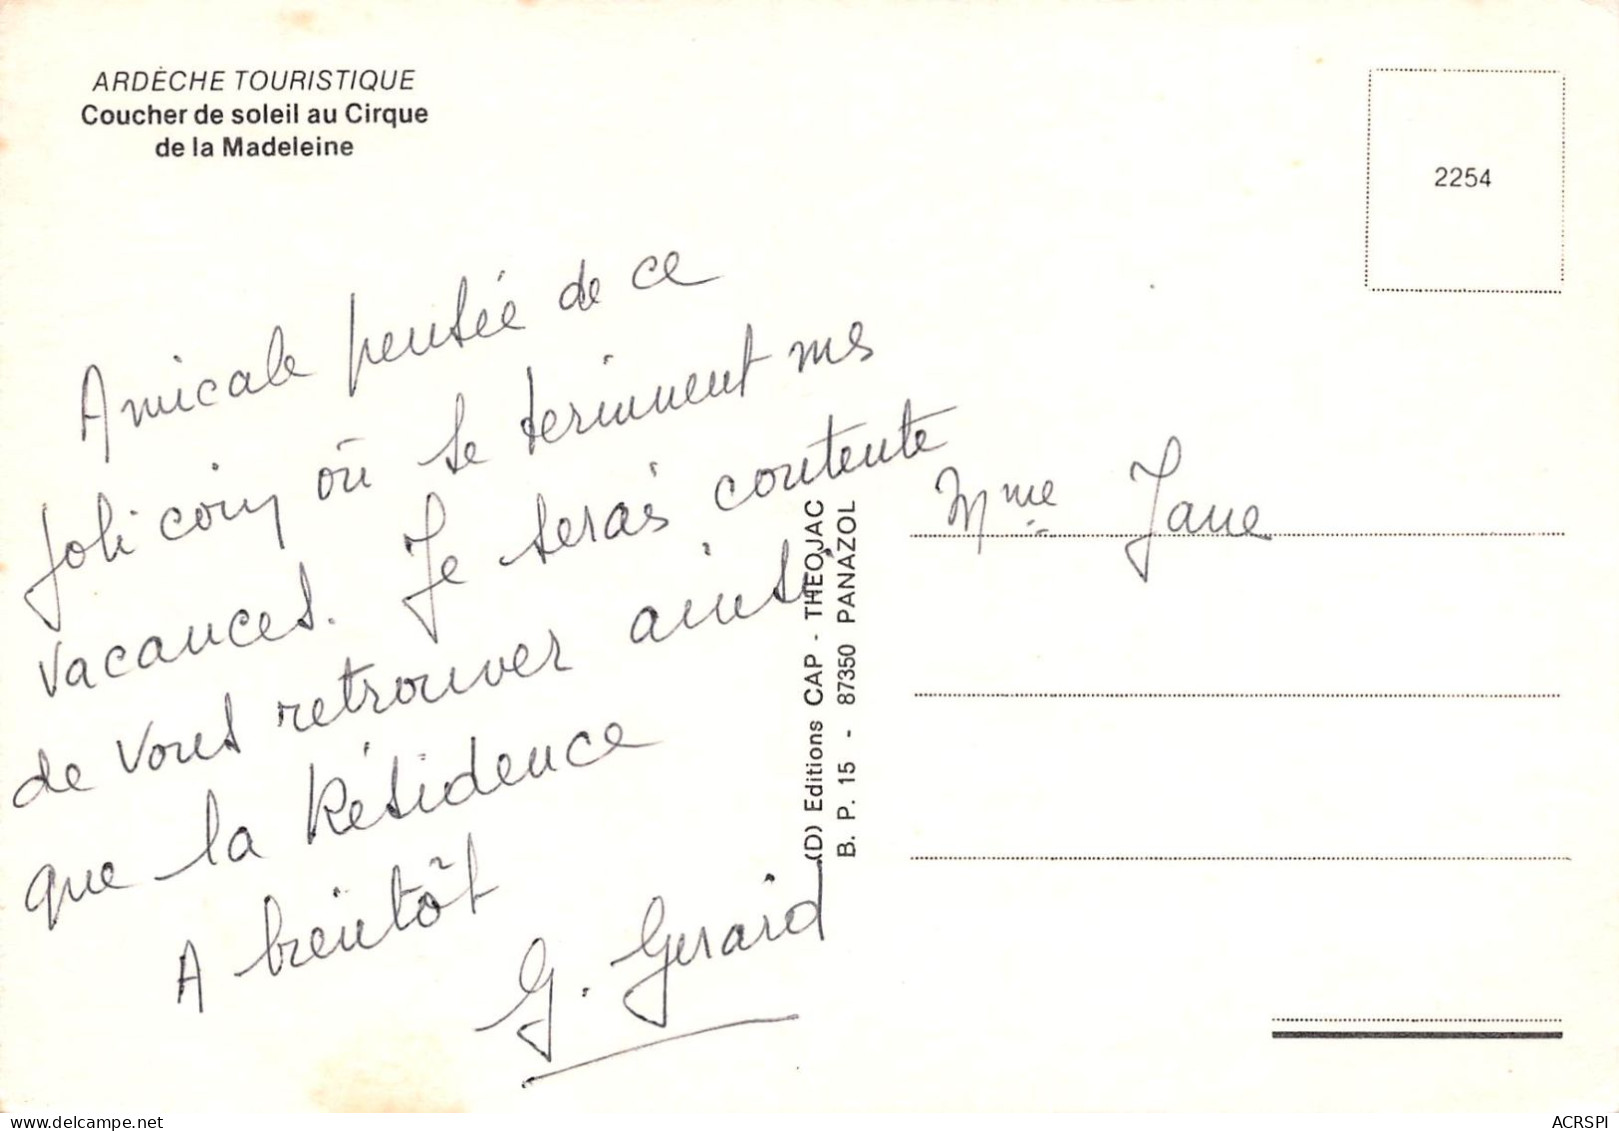 ARDÈCHE TOURISTIQUE
Coucher de soleil au Cirque
de la Madeleine
2254
Amicale pensée de ce
joli coin où se terminent mes
vacances. Je serais contente
de vous retrouver ainsi
que la Résidence
A bientôt
G. Gerard
(D) Editions CAP - THEOJAC
B. P. 15 - 87350 PANAZOL
Mme Jane
ACRSPI